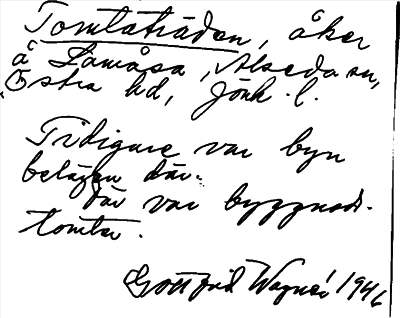 Tomtaträden, åker
å Lamåsa, Alseda sn,
Östra hd, Jönk. l.
Tidigare var byn
belägen där.
där var byggnads-
tomter.
Gottfrid Wagnér 1946